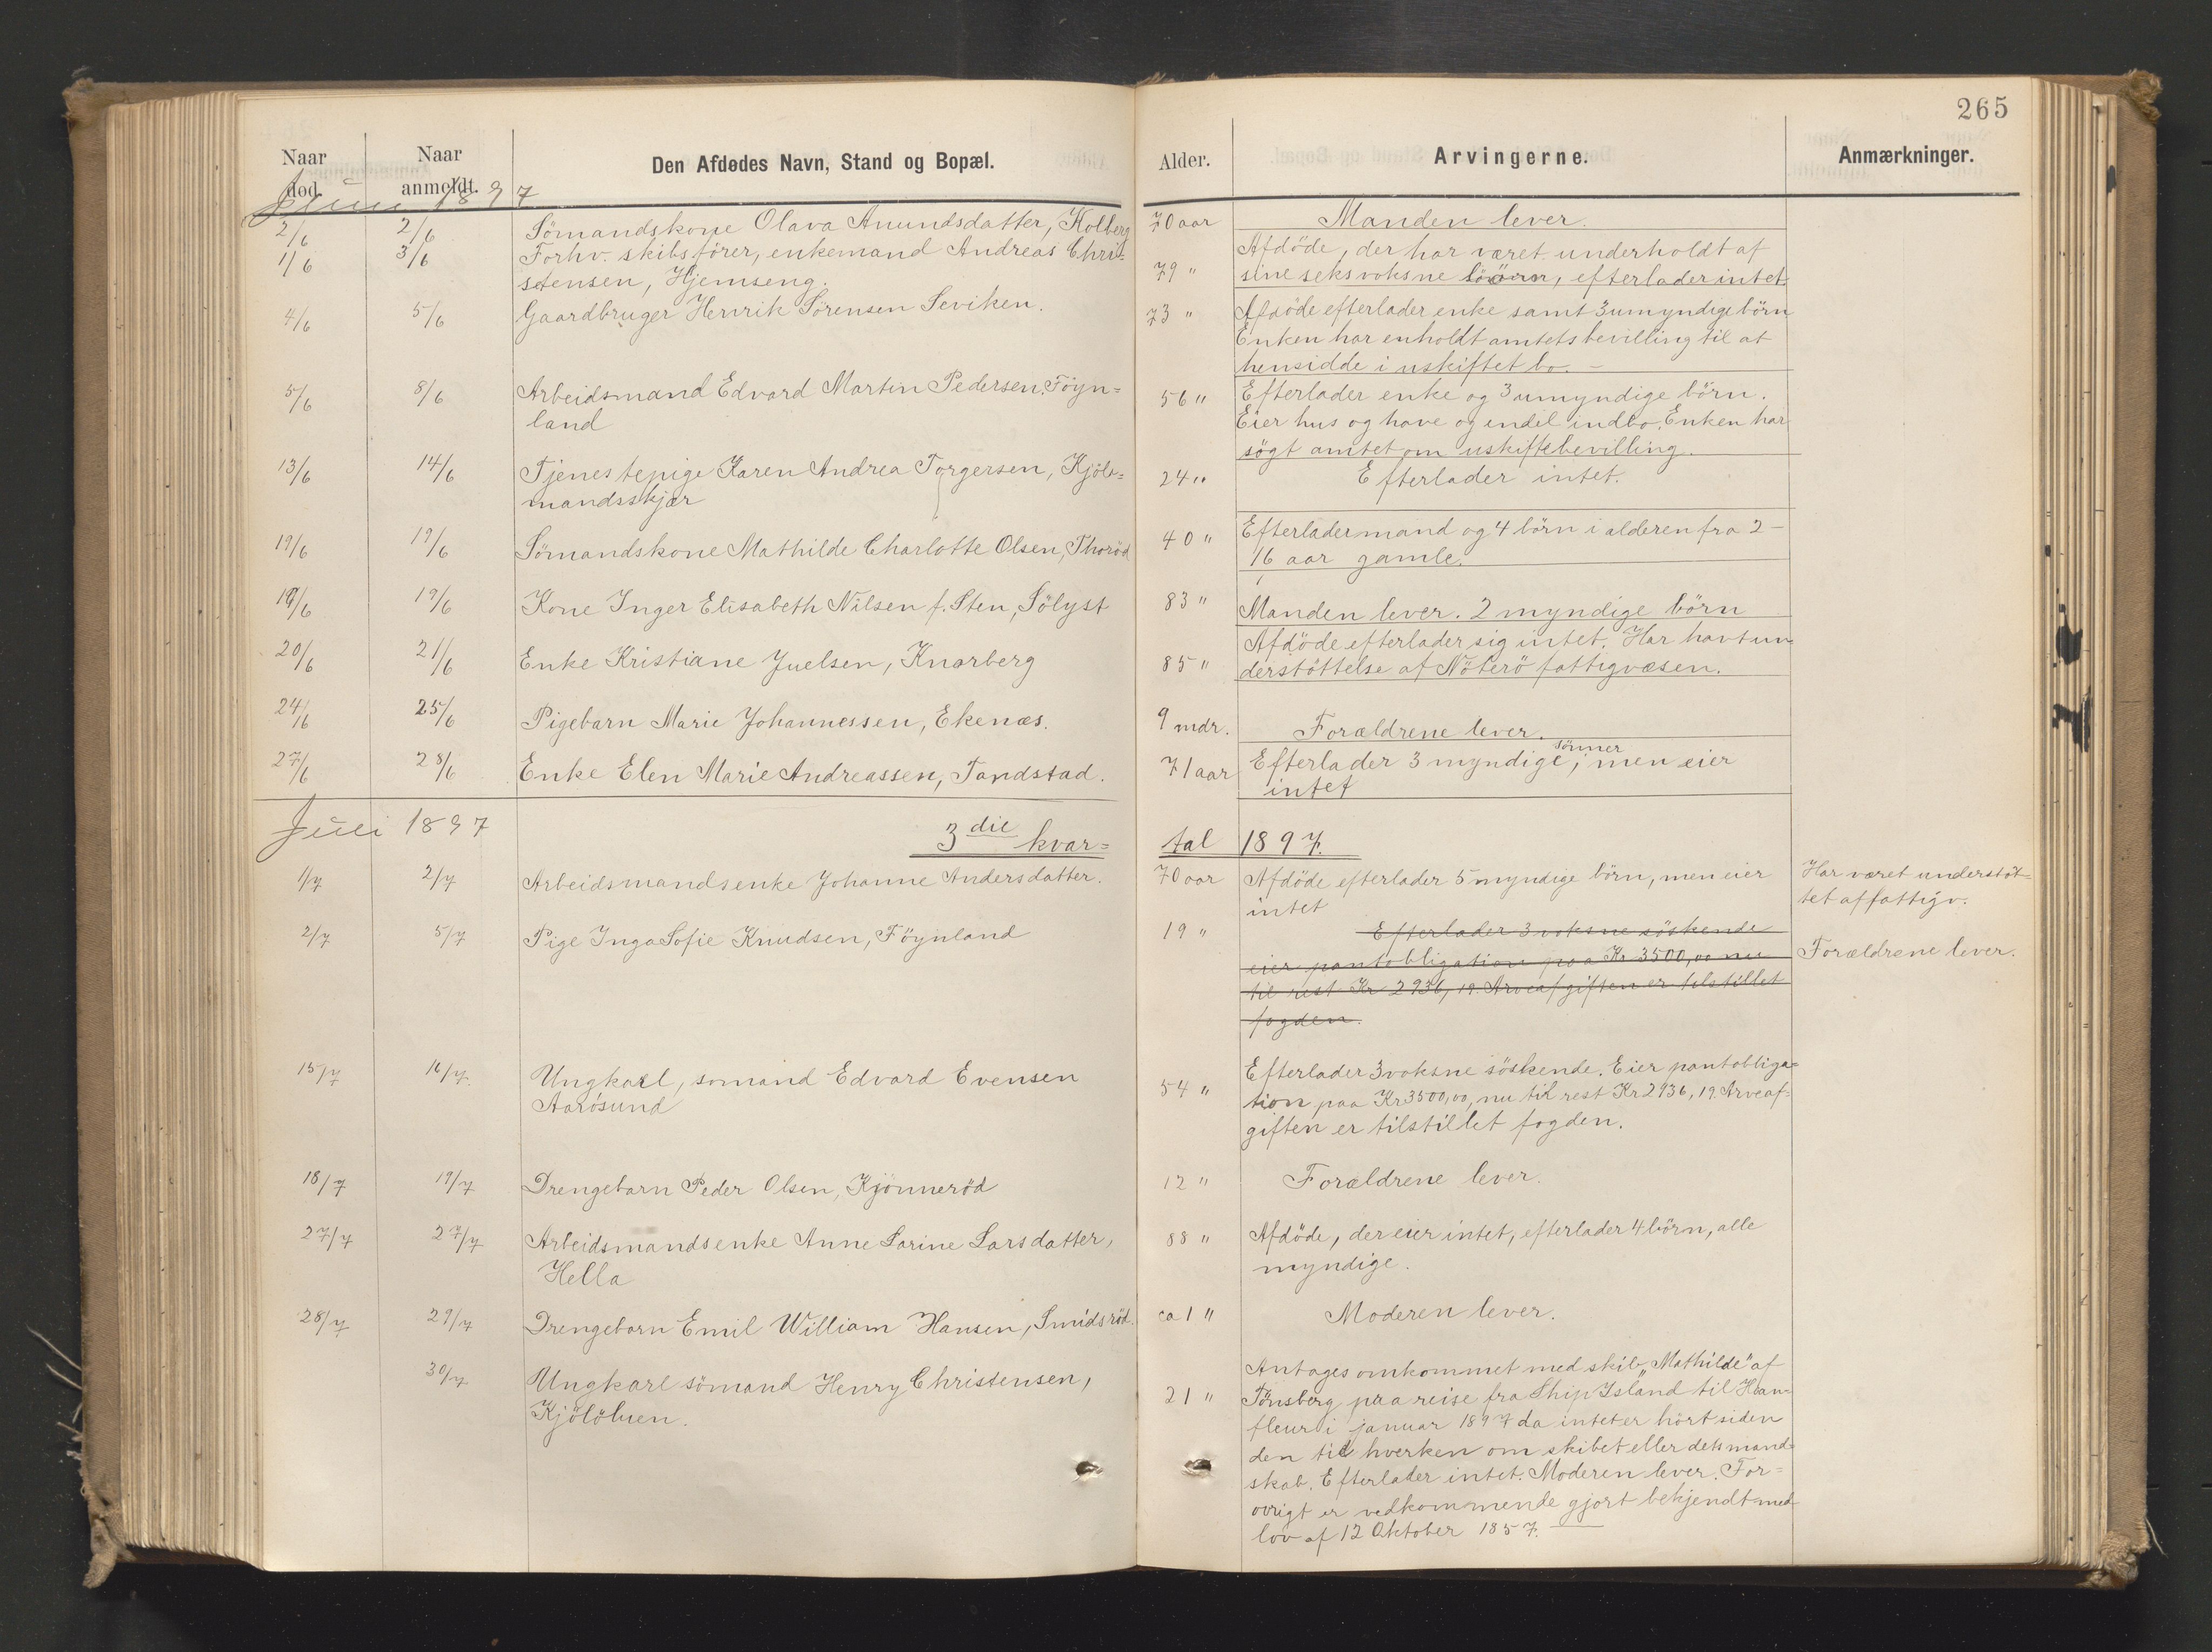 265
Naar død. Naar anmeldt. Den Afdødes Navn, Stand og Bopæl. Alder. Arvingerne. Anmærkninger.
Juni 1897
2/6 2/6 Sömandskone Olava Anundsdatter, Kolberg 70 aar Manden lever.
1/6 3/6 Forhv. skibsförer, enkemand Andreas Chri=
stensen, Hjemseng. 79 "
Afdöde, der har været underholdt af
sine seks voksne börn, efterlader intet.
4/6 5/6 Gaardbruger Henrik Sörensen Seviken. 73 " Afdöde efterlader enke samt 3 umyndige börn
Enken har enholdt amtets bevilling til at
hensidde i uskiftet bo. –
5/6 8/6 Arbeidsmand Edvard Martin Pedersen. Föyn=
land
56 " Efterlader enke og 3 umyndige börn.
Eier hus og have og endel indbo. Enken har
sögt amtet om uskiftebevilling.
13/6 14/6 Tjenestepige Karen Andrea Torgersen, Kjöl=
mandsskjær
24 " Efterlader intet.
19/6 19/6 Sömandskone Mathilde Charlotte Olsen, Thoröd 40 " Efterlader mand og 4 börn i alderen fra 2 –
16 aar gamle.
19/6 19/6 Kone Inger Elisabeth Nilsen f. Sten, Sölyst 83 " Manden lever. 2 myndige börn
20/6 21/6 Enke Kristiane Juelsen, Knarberg 85 "
Afdöde efterlader sig intet. Har havt un=
derstöttelse af Nöterö fattigvæsen.
24/6 25/6 Pigebarn Marie Johannessen, Ekenæs. 9 mdr. Forældrene lever.
27/6 28/6 Enke Elen Marie Andreassen, Tandstad. 71 aar Efterlader 3 myndige sönner, men eier
intet
Juli 1897 3die kvar=tal 1897.
1/7 2/7 Arbeidsmandsenke Johanne Andersdatter. 70 aar Afdöde efterlader 5 myndige börn, men eier
intet
Har været understöt=
tet af fattigv.
2/7 5/7 Pige Inga Sofie Knudsen, Föynland 19 " Efterlader 3 voksne söskende
eier pantobligation paa Kr 3500,00 nu
til rest Kr 2936,19. Arveafgiften er tilstillet
fogden.
Forældrene lever.
15/7 16/7. Ungkarl, sömand Edvard Evensen
Aarösund
54 " Efterlader 3 voksne söskende. Eier pantobliga=
tion paa Kr 3500,00, nu til rest Kr 2936,19. Arveaf=
giften er tilstillet fogden.
18/7 19/7 Drengebarn Peder Olsen, Kjönneröd 12 " Forældrene lever.
27/7 27/7 Arbeidsmandsenke Anne Larine Larsdatter,
Hella
88 " Afdöde, der eier intet, efterlader 4 börn, alle
myndige.
28/7 29/7 Drengebarn Emil William Hansen, Smidsröd. ca 1 " Moderen lever.
30/7 Ungkarl sömand Henry Christensen,
21 "
Antages omkommet med skib "Mathilde" af
Tönsberg paa reise fra Ship Island til Han=
fleur i januar 1897 da intet er hört siden
den tid hverken om skibet eller dets mand=
skab. Efterlader intet. Moderen lever. For=
övrigt er vedkommende gjort bekjendt med
lov af 12 Oktober 1857. —